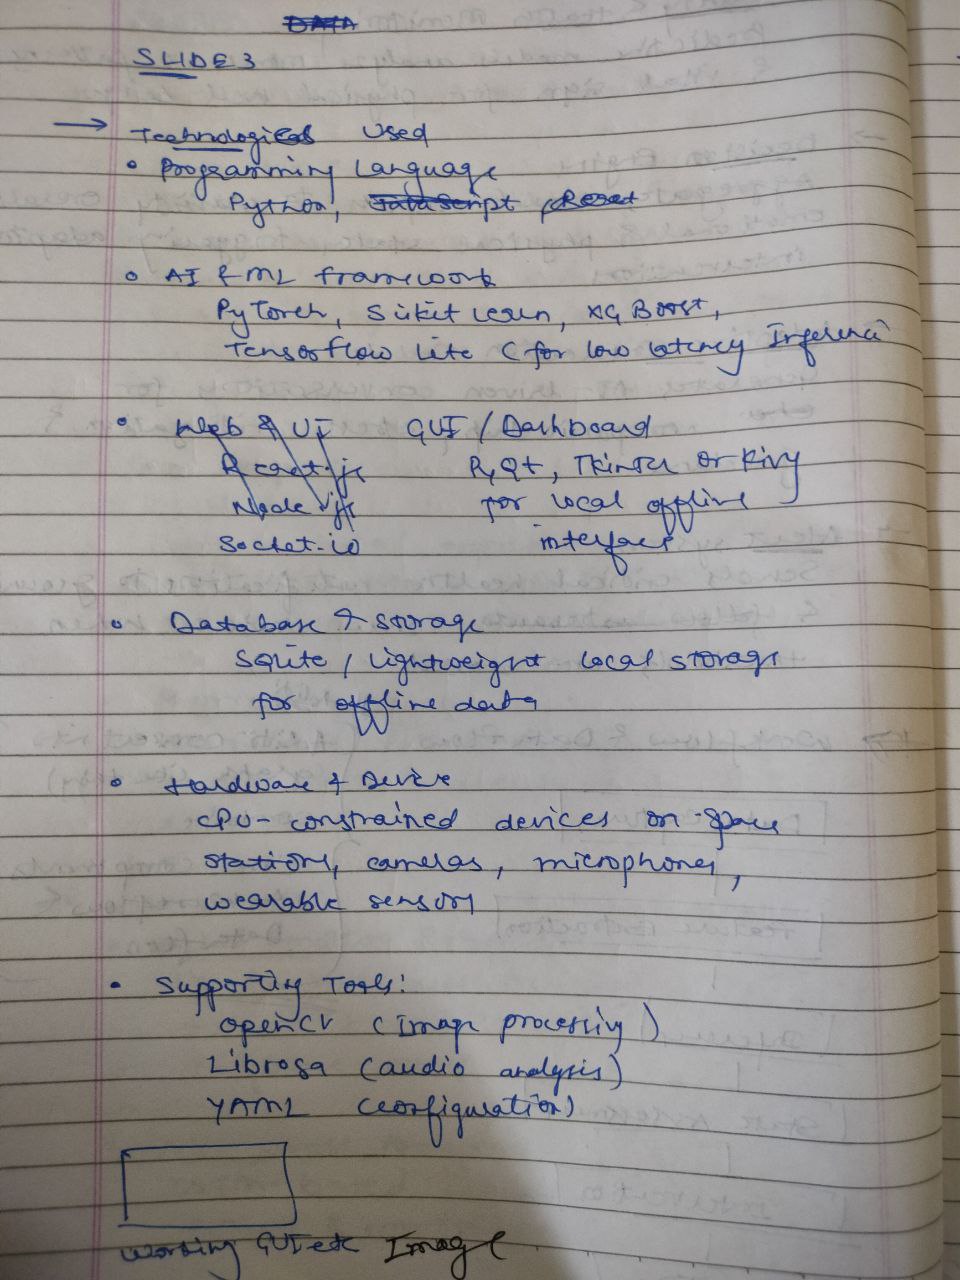 DATA
SLIDE 3
→ Technologies Used
• Programming Language
Python, JavaScript, React
• AI & ML framework
PyTorch, Scikit Learn, XG Boost,
TensorFlow Lite (for low latency Inference
• Web & UI GUI / Dashboard
React.js PyQt, Tkinter or Kivy
Node.js for local offline
Socket.io interface
• Database & storage
SQlite / lightweight local storage
for offline data
• Hardware & Device
CPU-constrained devices on space
stations, cameras, microphones,
wearable sensors
• Supporting Tools:
OpenCV (Image processing)
Librosa (audio analysis)
YAML (configuration)
Working GUI Image